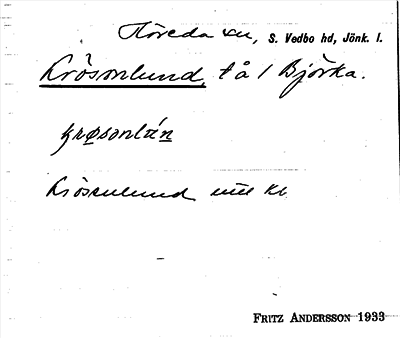 Höreda sn, S. Vedbo hd, Jönk. l.
Krösonlund, t å / Björka.
krøsonlán
Krösenlund utt kl
FRITZ ANDERSSON 1933